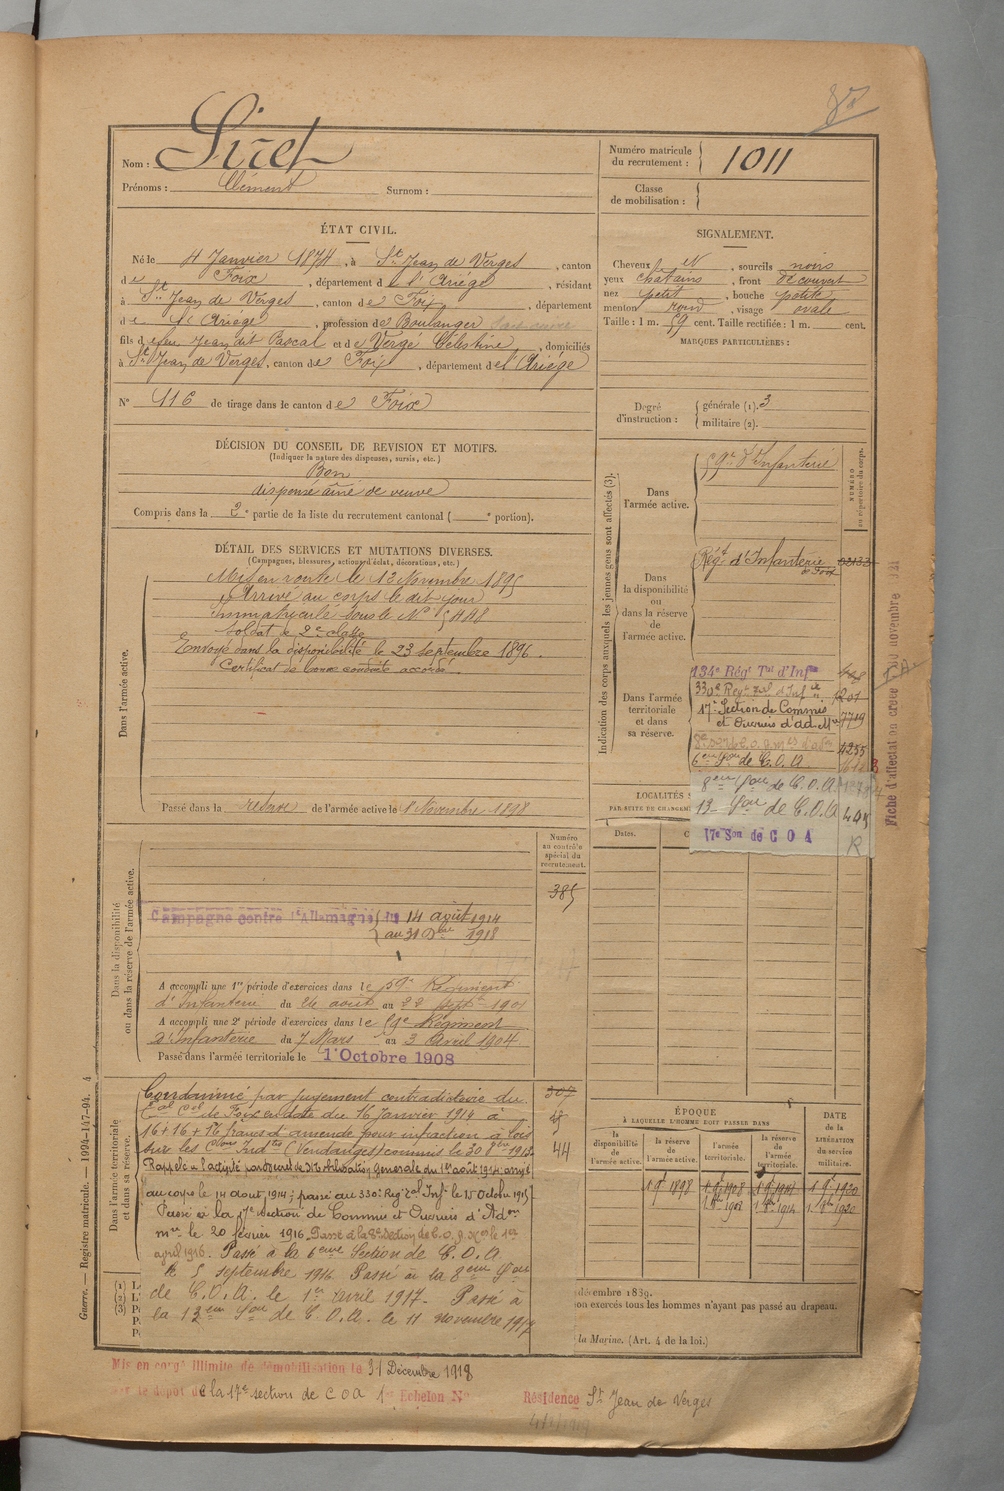 Nom : Siret
Prénoms : Clément Surnom :
Numéro matricule du recrutement : 1011
Classe de mobilisation :
ÉTAT CIVIL.
Né le 4 Janvier 1874, à St Jean de Verges, canton
de Foix, département de l'Ariége, résidant
à St Jean de Verges, canton de Foix, département
de l'Ariége, profession de Boulanger
fils de feu Jean dit Pascal et de Verge Célestine, domiciliés
à St Jean de Verges, canton de Foix, département de l'Ariége
N° 116 de tirage dans le canton de Foix
SIGNALEMENT.
Cheveux N, sourcils noirs
yeux chatains, front découvert
nez petit, bouche petite
menton rond, visage ovale
Taille : 1 m. 59 cent. Taille rectifiée : 1 m. cent.
MARQUES PARTICULIÈRES :
Degré d'instruction : générale (1). 3
militaire (2).
DÉCISION DU CONSEIL DE REVISION ET MOTIFS.
(Indiquer la nature des dispenses, sursis, etc.)
Bon
dispensé ainé de veuve
Compris dans la 2e partie de la liste du recrutement cantonal ( e portion).
DÉTAIL DES SERVICES ET MUTATIONS DIVERSES.
(Campagnes, blessures, actions d'éclat, décorations, etc.)
Dans l'armée active.
Mis en route le 12 Novembre 1895
Arrivé au corps le dit jour
Immatriculé sous le N° 5448
Soldat de 2e classe
Envoyé dans la disponibilité le 23 septembre 1896.
Certificat de bonne conduite accordé.
Passé dans la réserve de l'armée active le 1 Novembre 1898
Indication des corps auxquels les jeunes gens sont affectés (3).
NUMÉRO au répertoire du corps.
Dans l'armée active.
59e d'Infanterie
Dans la disponibilité ou dans la réserve de l'armée active.
Régt d'Infanterie de Foix
Dans l'armée territoriale et dans sa réserve.
134e Régt Tal d'Infie
330e Regt tal d'Infie 1201
17e Section de Commis et Ouvriers d'ad. Mre 7719
4255
6eme Son de C.O.A.
8eme Son de C.O.A.
13e Son de C.O.A 445
17e Son de C O A R
LOCALITÉS
PAR SUITE DE CHANGEM
Dates.
Fiche d'affectation créée novembre
Dans la disponibilité ou dans la réserve de l'armée active.
Numéro au contrôle spécial du recrutement.
385
Campagne contre l'Allemagne du 14 août 1914
au 31 Dbre 1918
A accompli une 1re période d'exercices dans le 59e Régiment
d'Infanterie du 26 août au 22 septe 1901
A accompli une 2e période d'exercices dans le 59e Régiment
d'Infanterie du 7 Mars au 3 avril 1904
Passé dans l'armée territoriale le 1er Octobre 1908
Dans l'armée territoriale et dans sa réserve.
307
44
Condamné par jugement contradictoire du
de Foix en date du 16 Janvier 1914 à
16+16+16 francs d'amende pour infraction à lois
sur les (Vendanges) commis le 30 7bre 1913
Rappelé à l'activité par décret de Mobilisation Générale du 1er août 1914 arrivé
au corps le 14 aout 1914; passé au 330e Regt tal Inf le 15 Octobre 1915
Passé à la 17e Section de Commis et Ouvriers d'Adon
mre le 20 février 1916. Passé à la 8e Section de C.O.A. le 1er
avril 1916. Passé à la 6eme Section de C.O.A.
le 5 septembre 1916 Passé à la 8eme Son
de C.O.A. le 1er avril 1917. Passé à
la 13eme Son de C.O.A. le 11 novembre 1917
ÉPOQUE
À LAQUELLE L'HOMME DOIT PASSER DANS
DATE de la LIBÉRATION du service militaire.
la disponibilité de l'armée active.
la réserve de l'armée active.
l'armée territoriale.
la réserve de l'armée territoriale.
1 9bre 1898
1 9bre 1908
1 9bre 1920
1 8bre 1908 1 8bre 1914 1 8bre 1920
décembre 1889.
ion exercés tous les hommes n'ayant pas passé au drapeau.
la Marine. (Art. 4 de la loi.)
Guerre. — Registre matricule. — 1994-147-94.
Mis en congé illimité de démobilisation le 31 Décembre 1918
par le dépôt de la 17e section de C O A 1er Echelon N°
Résidence St Jean de Verges